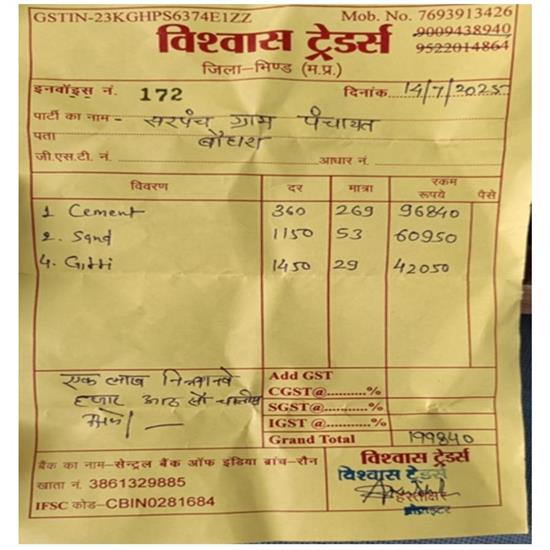 GSTIN-23KGHPS6374E1ZZ Mob. No. 7693913426
9009438940
9522014864
विश्वास ट्रेडर्स
जिला-भिण्ड (म.प्र.)
इनवॉइस नं. 172 दिनांक 14/7/2025
पार्टी का नाम - सरपंच ग्राम पंचायत
पता
जी.एस.टी. नं. आधार नं.
विवरण दर मात्रा रकम रूपये पैसे
1 Cement 360 269 96840
2. Sand 1150 53 60950
4. Gitti 1450 29 42050
Add GST
CGST@..........%
SGST@..........%
IGST @..........%
एक लाख निन्यानवे
हजार आठ सौ चालीस
Grand Total 199840
बैंक का नाम–सेन्ट्रल बैंक ऑफ इंडिया ब्रांच-रौन
खाता नं. 3861329885
IFSC कोड-CBIN0281684
विश्वास ट्रेडर्स
विश्वास ट्रेडर्स
हस्ताक्षर
प्रोपाइटर